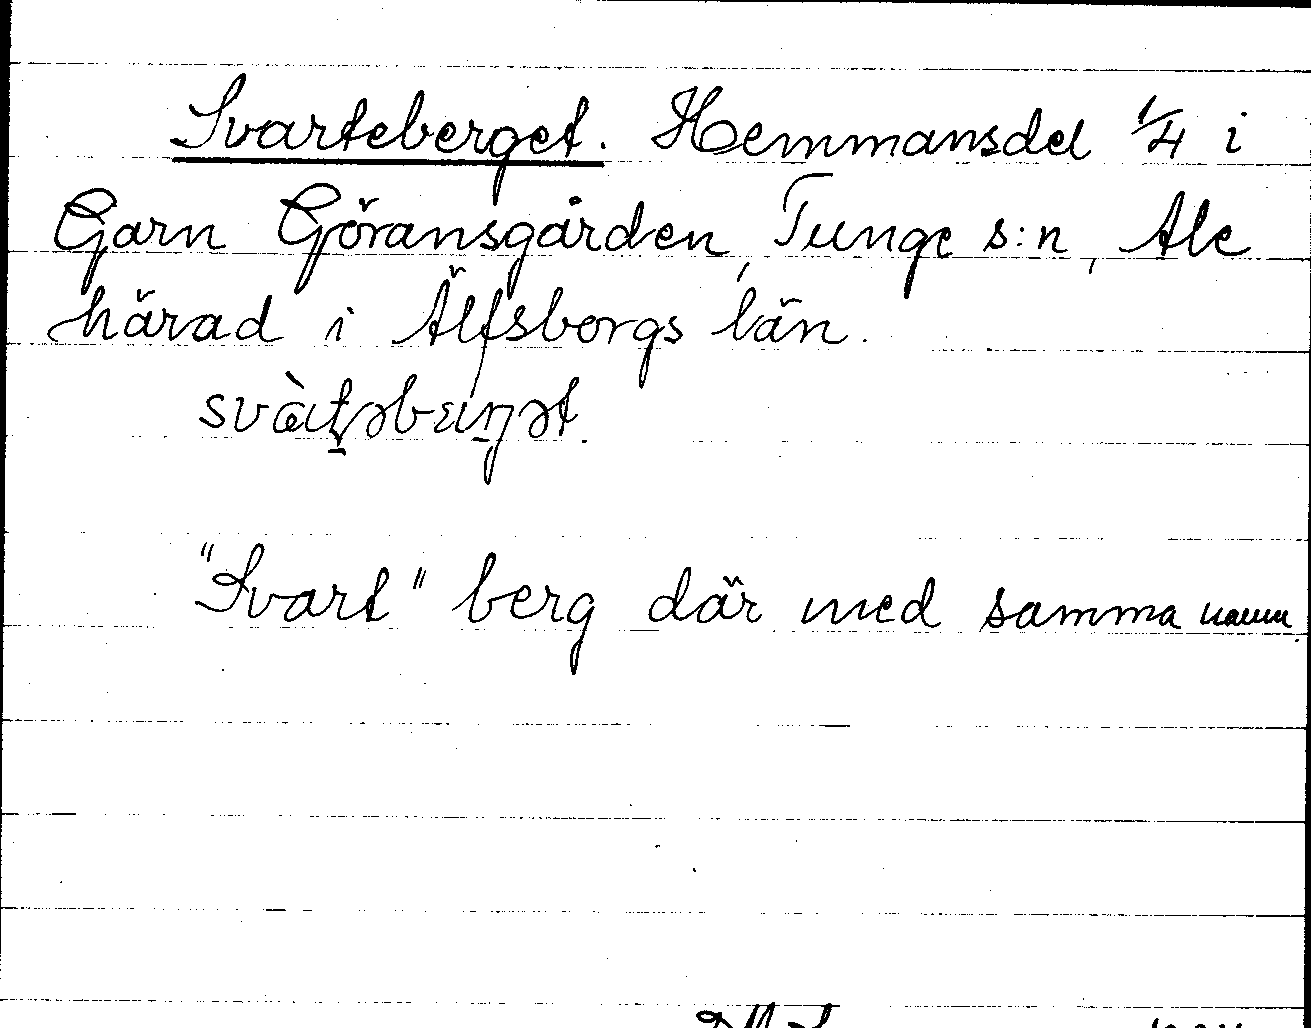 Svarteberget. Hemmansdel 1/4 i
Garn Göransgården, Tunge s:n, Ale
härad i Älfsborgs län.
"Svart" berg där med samma namn